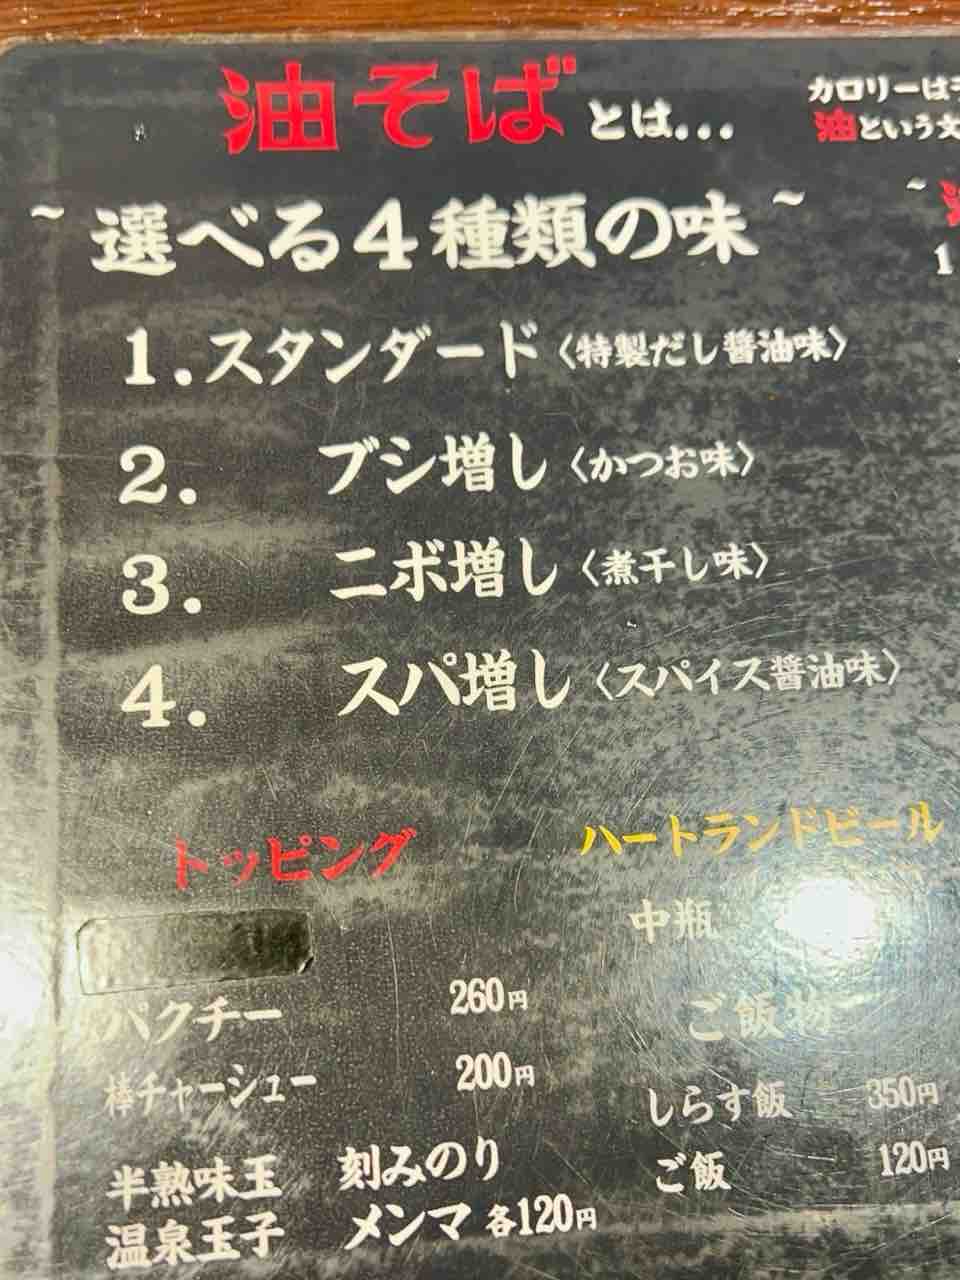 油そば とは...
カロリーは
油という文
~ 選べる4種類の味 ~
~
1
1.スタンダード〈特製だし醤油味〉
2. ブシ増し〈かつお味〉
3. ニボ増し〈煮干し味〉
4. スパ増し〈スパイス醤油味〉
トッピング
パクチー 260円
棒チャーシュー 200円
半熟味玉 刻みのり
温泉玉子 メンマ 各120円
ハートランドビール
中瓶
ご飯物
しらす飯 350円
ご飯 120円